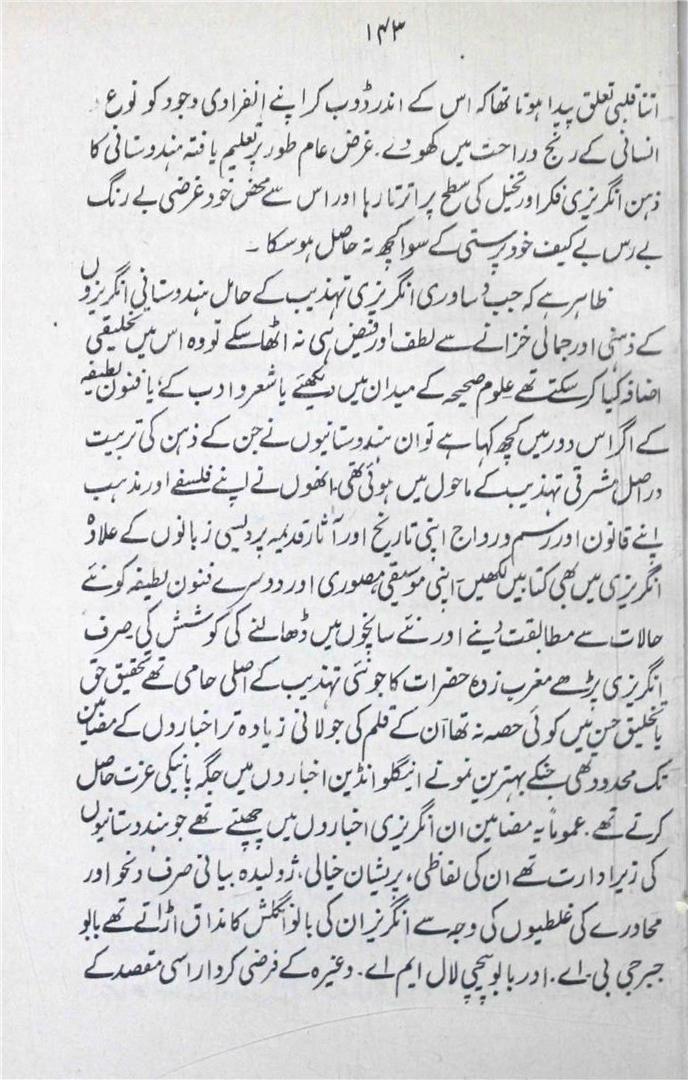 ۱۴۳
اتنا قلبی تعلق پیدا ہوتا تھا کہ اس کے اندر ڈوب کر اپنے انفرادی وجود کو نوع
انسانی کے رنج و راحت میں کھودے۔ غرض عام طور پر تعلیم یافتہ ہندوستانی کا
ذہن انگریزی فکر اور تخیل کی سطح پر اترتا رہا اور اس سے محض خود غرضی بے رنگ
بے رس بے کیف خود پرستی کے سوا کچھ نہ حاصل ہو سکا ۔
ظاہر ہے کہ جب دساوری انگریزی تہذیب کے حامل ہندوستانی انگریزوں
کے ذہنی اور جمالی خزانے سے لطف اور فیض ہی نہ اٹھا سکے تو وہ اس میں تخلیقی
اضافہ کیا کر سکتے تھے علوم صحیحہ کے میدان میں دیکھئے یا شعر و ادب کے؛ یا فنون لطیفہ
کے اگر اس دور میں کچھ کہا ہے تو ان ہندوستانیوں نے جن کے ذہن کی تربیت
دراصل مشرقی تہذیب کے ماحول میں ہوئی تھی۔ انھوں نے اپنے فلسفے اور مذہب
اپنے قانون اور رسم و رواج اپنی تاریخ اور آثار قدیمہ پر دیسی زبانوں کے علاوہ
انگریزی میں بھی کتابیں لکھیں۔ اپنی موسیقی مصوری اور دوسرے فنون لطیفہ کو نئے
حالات سے مطابقت دینے اور نئے سانچوں میں ڈھالنے کی کوشش کی۔ صرف
انگریزی پڑھے مغرب زدہ حضرات کا جو نئی تہذیب کے اصلی حامی تھے تحقیق حق
یا تخلیق حسن میں کوئی حصہ نہ تھا ان کے قلم کی جولانی زیادہ تر اخباروں کے مضامین
تک محدود تھی جنکے بہترین نمونے اینگلو انڈین اخباروں میں جگہ پانیکی عزت حاصل
کرتے تھے۔ عموماً یہ مضامین ان انگریزی اخباروں میں چھپتے تھے جو ہندوستانیوں
کی زیر ادارت تھے ان کی لفاظی، پریشان خیالی، ژولیدہ بیانی صرف و نحو اور
محاورے کی غلطیوں کی وجہ سے انگریز ان کی بابو انگلش کا مذاق اڑاتے تھے بابو
جبر جی بی۔ اے۔ اور بابو پیچی لال ایم اے۔ وغیرہ کے فرضی کردار اسی مقصد کے